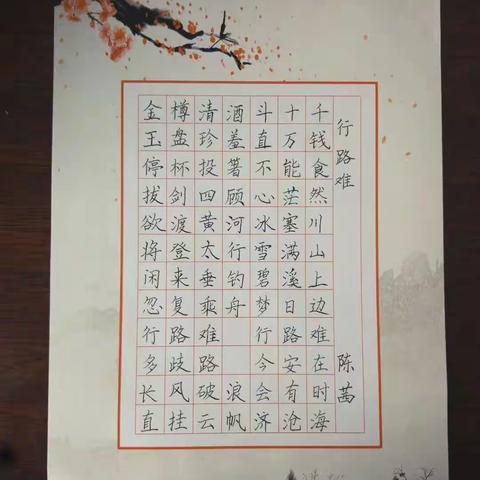 行路难
金樽清酒斗十千
玉盘珍羞直万钱
停杯投箸不能食
拔剑四顾心茫然
欲渡黄河冰塞川
将登太行雪满山
闲来垂钓碧溪上
忽复乘舟梦日边
行路难 行路难
多歧路 今安在
长风破浪会有时
直挂云帆济沧海
陈茜